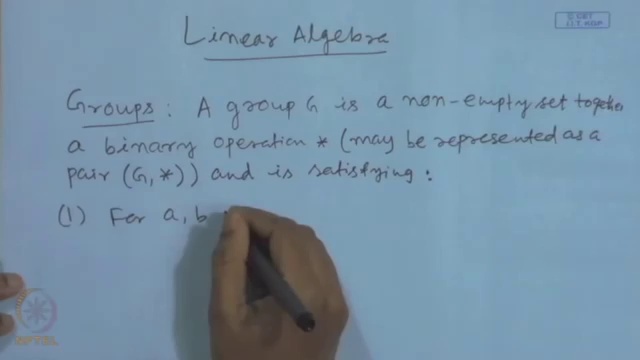 © CET
I.I.T. KGP
Linear Algebra
Groups : A group G is a non-empty set together
a binary operation * (may be represented as a
pair (G, *)) and is satisfying :
(1) For a, b
NPTEL